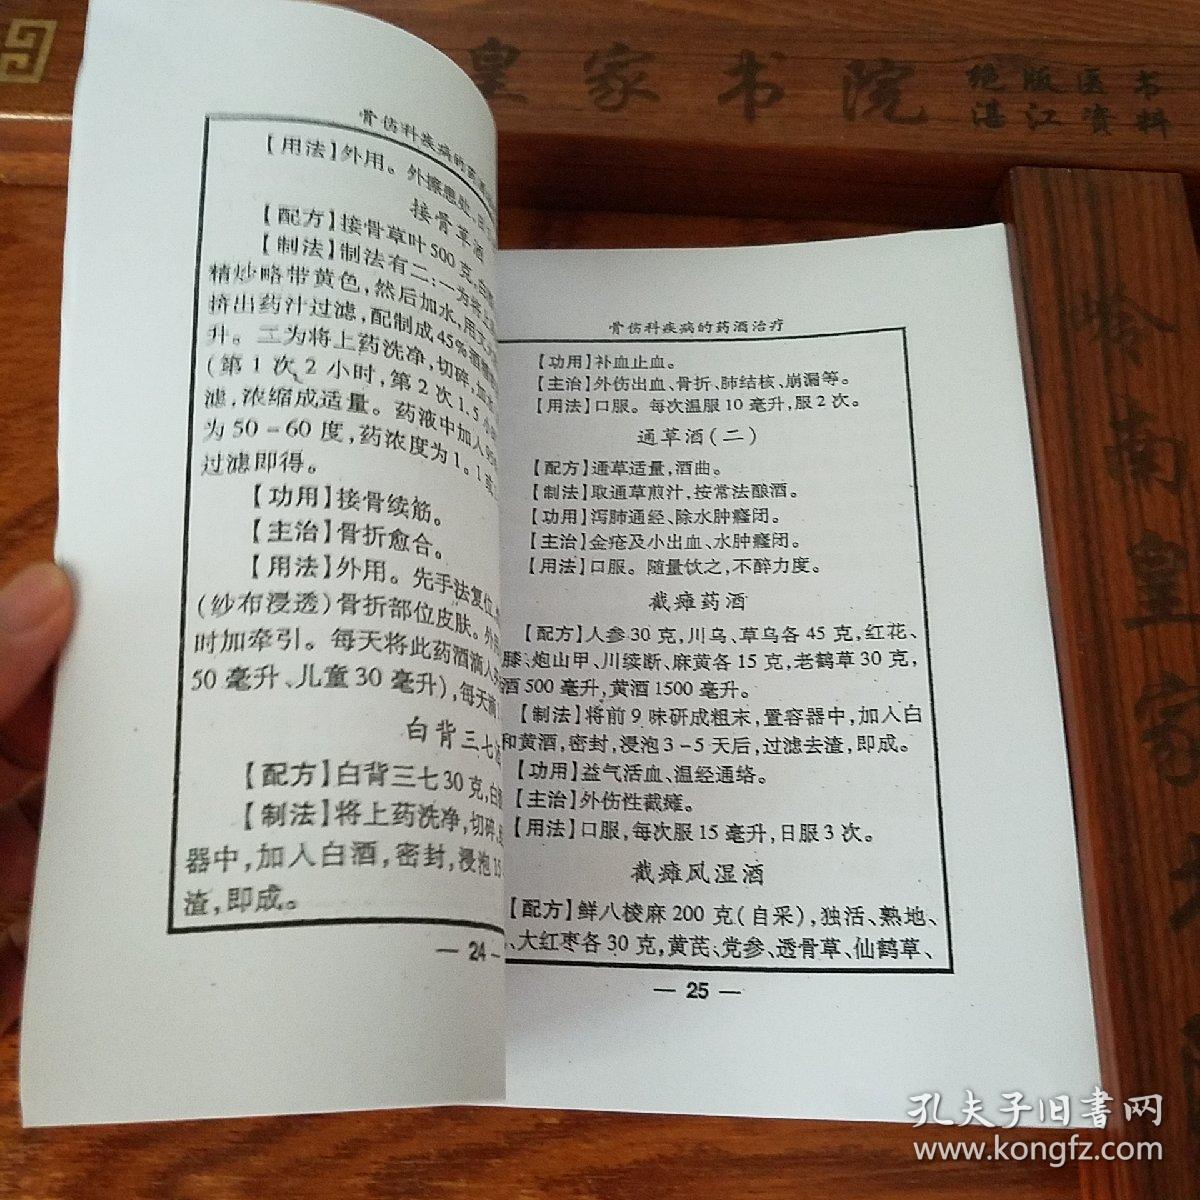 皇家书院
绝版医书
湛江资料
岭南皇家
骨伤科疾病的药酒
【用法】外用。外擦患处,日
接骨草酒
【配方】接骨草叶500克,白
【制法】制法有二:一为将上
精炒略带黄色,然后加水,用文火
挤出药汁过滤,配制成45%酒
升。二为将上药洗净,切碎,加水
(第1次2小时,第2次1.5小
滤,浓缩成适量。药液中加入95%
为50-60度,药浓度为1。1或
过滤即得。
【功用】接骨续筋。
【主治】骨折愈合。
【用法】外用。先手法复位,
(纱布浸透)骨折部位皮肤。外
时加牵引。每天将此药酒滴入
50毫升、儿童30毫升),每天滴
白背三七
【配方】白背三七30克,白
【制法】将上药洗净,切碎,
器中,加入白酒,密封,浸泡15
渣,即成。
— 24 —
骨伤科疾病的药酒治疗
【功用】补血止血。
【主治】外伤出血、骨折、肺结核、崩漏等。
【用法】口服。每次温服10毫升,服2次。
通草酒(二)
【配方】通草适量,酒曲。
【制法】取通草煎汁,按常法酿酒。
【功用】泻肺通经、除水肿癃闭。
【主治】金疮及小出血、水肿癃闭。
【用法】口服。随量饮之,不醉力度。
截瘫药酒
【配方】人参30克,川乌、草乌各45克,红花、
膝、炮山甲、川续断、麻黄各15克,老鹳草30克,
酒500毫升,黄酒1500毫升。
【制法】将前9味研成粗末,置容器中,加入白
和黄酒,密封,浸泡3-5天后,过滤去渣,即成。
【功用】益气活血、温经通络。
【主治】外伤性截瘫。
【用法】口服,每次服15毫升,日服3次。
截瘫风湿酒
【配方】鲜八棱麻200克(自采),独活、熟地、
、大红枣各30克,黄芪、党参、透骨草、仙鹤草、
— 25 —
孔夫子旧书网
www.kongfz.com